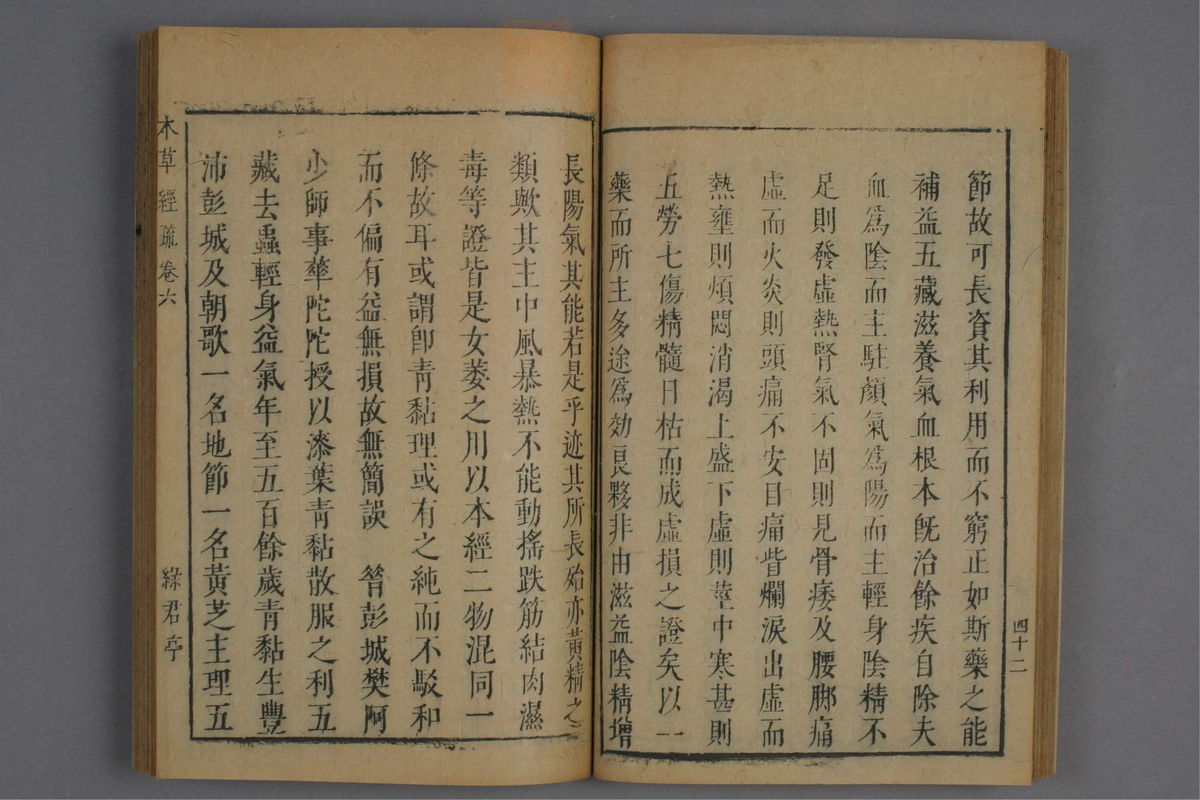 節故可長資其利用而不窮正如斯藥之能
補益五藏滋養氣血根本旣治餘疾自除夫
血爲陰而主駐顏氣爲陽而主輕身陰精不
足則發虛熱腎氣不固則見骨痿及腰腳痛
虛而火炎則頭痛不安目痛眥爛淚出虛而
熱壅則煩悶消渴上盛下虛則莖中寒甚則
五勞七傷精髓日枯而成虛損之證矣以一
藥而所主多途爲効良夥非由滋益陰精增
四十二
長陽氣其能若是乎迹其所長殆亦黃精之
類歟其主中風暴熱不能動搖跌筋結肉濕
毒等證皆是女萎之用以本經二物混同一
條故耳或謂卽靑黏理或有之純而不駁和
而不偏有益無損故無簡誤　昝彭城樊阿
少師事華陀陀授以漆葉靑黏散服之利五
藏去蟲輕身益氣年至五百餘歲靑黏生豐
沛彭城及朝歌一名地節一名黃芝主理五
本草經疏卷六
綠君亭